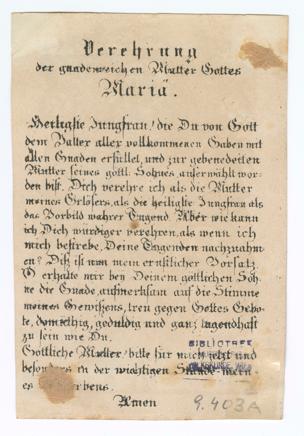 Verehrung
der gnadenreichen Mutter Gottes
Mariä.
Heiligste Jungfrau! die Du von Gott
dem Vatter aller vollkommenen Gaben mit
allen Gnaden erfüllet, und zur gebenedeiten
Mutter seines göttl. Sohnes auserwählt wor-
den bist. Dich verehre ich als die Mutter
meines Erlösers, als die heiligste Jungfrau als
das Vorbild wahrer Tugend. Aber wie kann
ich Dich würdiger verehren, als wenn ich
mich bestrebe, Deine Tugenden nachzuahm
en? Diß ist nun mein ernstlicher Vorsatz.
O erhalte mir bey Deinem göttlichen Soh-
ne die Gnade, aufmerksam auf die Stimme
meines Gewißens, treu gegen Gottes Gebo-
te, demüthig, geduldig und ganz tugendhaft
zu sein wie Du.
Göttliche Mutter! bitte für mich jetzt und
besonders in der wichtigen Stunde mein-
es Sterbens.
Amen
BIBLIOTHEK
9.403A